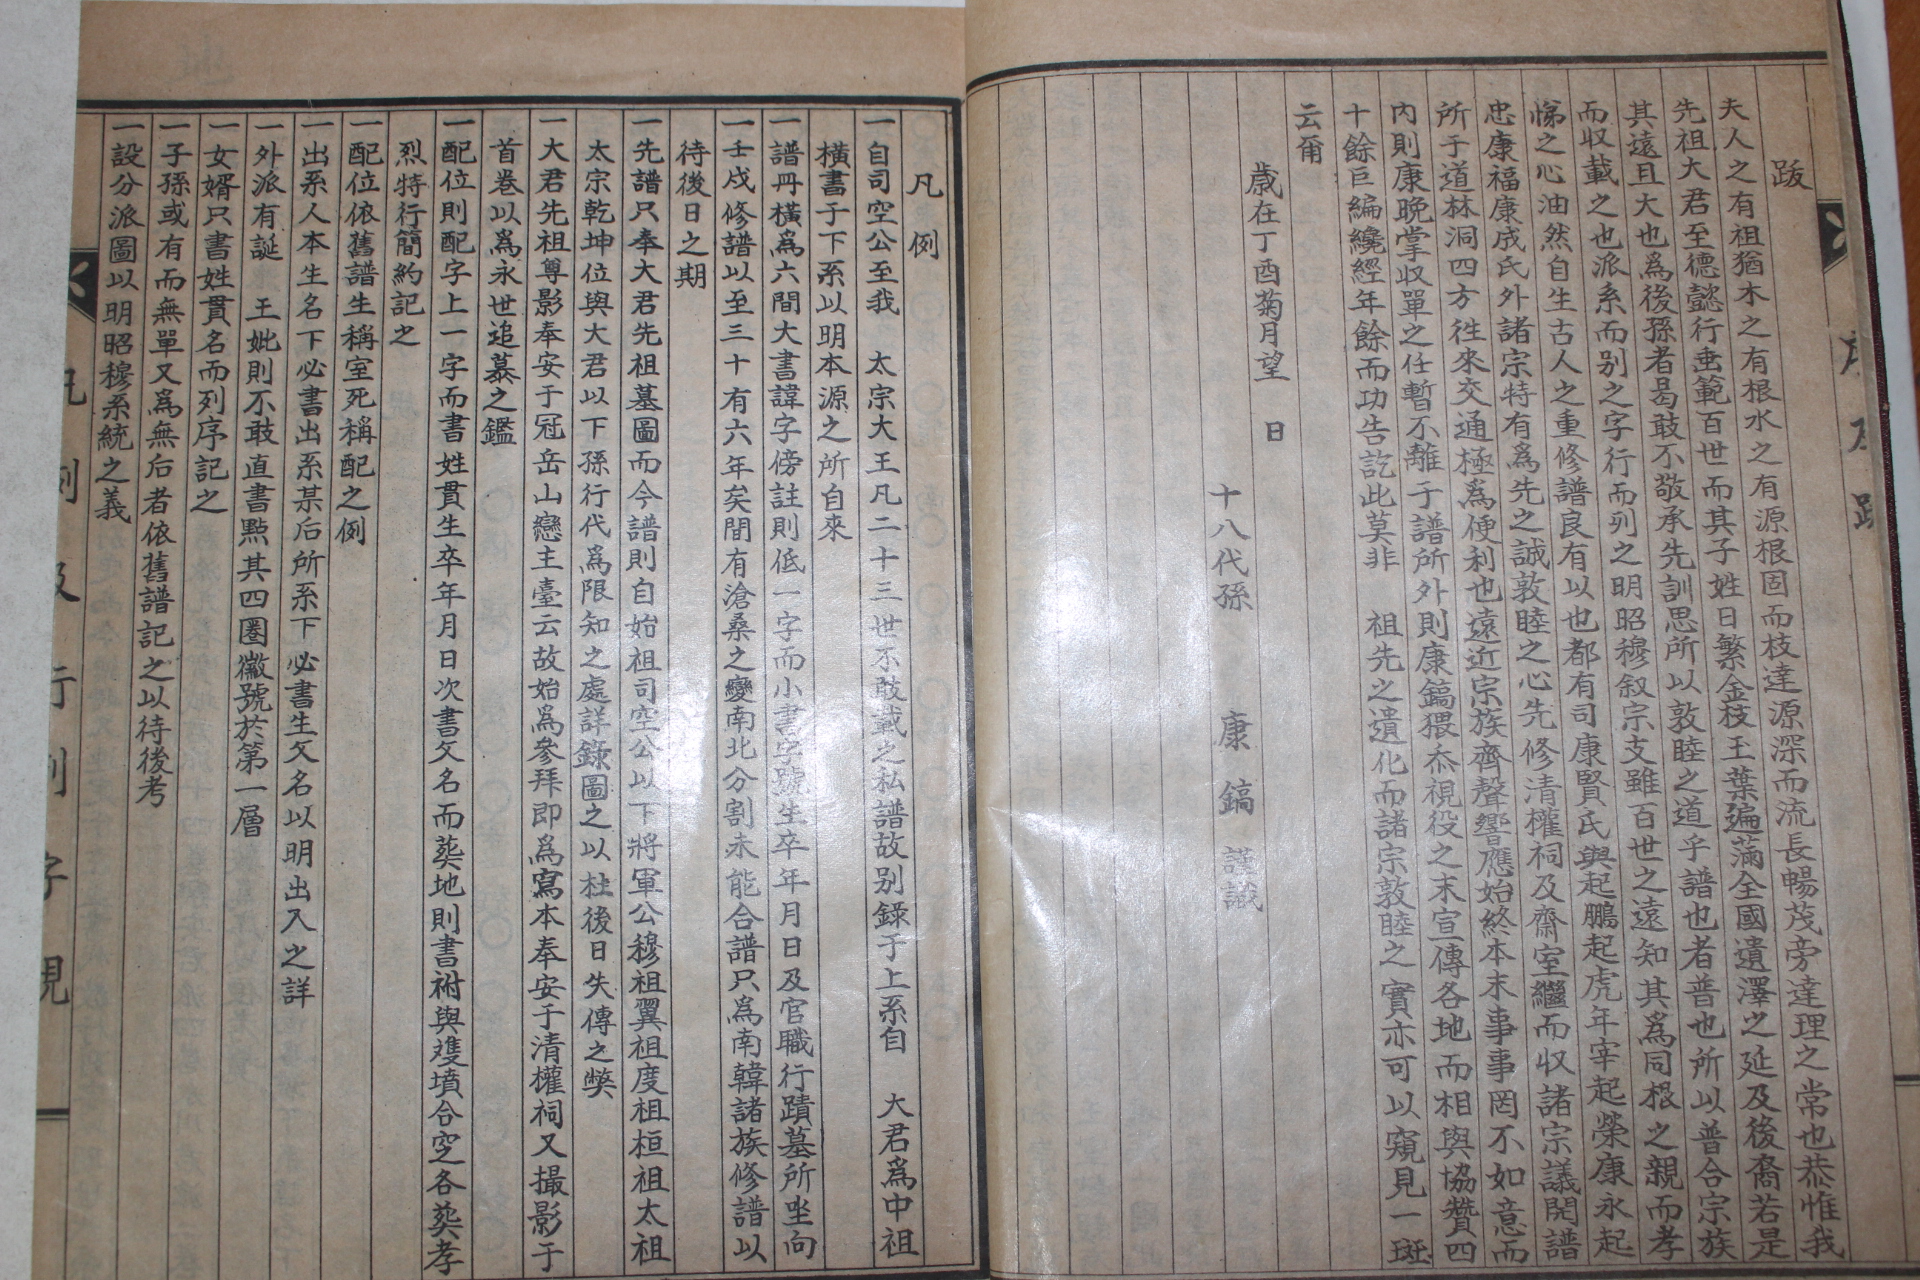 跋
夫人之有祖猶木之有根水之有源根固而枝達源深而流長暢茂旁達理之常也恭惟我
先祖大君至德懿行垂範百世而其子姓日繁金枝玉葉遍滿全國遺澤之延及後裔若是
其遠且大也爲後孫者曷敢不敬承先訓思所以敦睦之道乎譜也者普也所以普合宗族
而收載之也派系而別之字行而列之明昭穆叙宗支雖百世之遠知其爲同根之親而孝
悌之心油然自生古人之重修譜良有以也都有司康賢氏與起鵬起虎年宰起榮康永起
忠康福康成氏外諸宗特有爲先之誠敦睦之心先修清權祠及齋室繼而收諸宗議開譜
所于道林洞四方往來交通極爲便利也遠近宗族齊聲響應始終本末事事罔不如意而
內則康晩掌收單之任暫不離于譜所外則康鎬猥忝視役之末宣傳各地而相與協贊四
十餘巨編纔經年餘而功告訖此莫非 祖先之遺化而諸宗敦睦之實亦可以窺見一斑
云爾
歲在丁酉菊月望 日
十八代孫 康鎬 謹識
凡例
一自司空公至我 太宗大王凡二十三世不敢載之私譜故別錄于上系自 大君爲中祖
橫書于下系以明本源之所自來
一譜冊橫爲六間大書諱字傍註則低一字而小書字號生卒年月日及官職行蹟墓所坐向
一壬戌修譜以至三十有六年矣間有滄桑之變南北分割未能合譜只爲南韓諸族修譜以
待後日之期
一先譜只奉大君先祖墓圖而今譜則自始祖司空公以下將軍公穆祖翼祖度祖桓祖太祖
太宗乾坤位與大君以下孫行代爲限知之處詳錄圖之以杜後日失傳之獘
一大君先祖尊影奉安于冠岳山戀主臺云故始爲參拜即爲寫本奉安于清權祠又撮影于
首卷以爲永世追慕之鑑
一配位則配字上一字而書姓貫生卒年月日次書父名而葬地則書祔與雙墳合窆各葬孝
烈特行簡約記之
一配位依舊譜生稱室死稱配之例
一出系人本生名下必書出系某后所系下必書生父名以明出入之詳
一外派有誕 王妣則不敢直書點其四圈徽號於第一層
一女婿只書姓貫名而列序記之
一子孫或有而無單又爲無后者依舊譜記之以待後考
一設分派圖以明昭穆系統之義